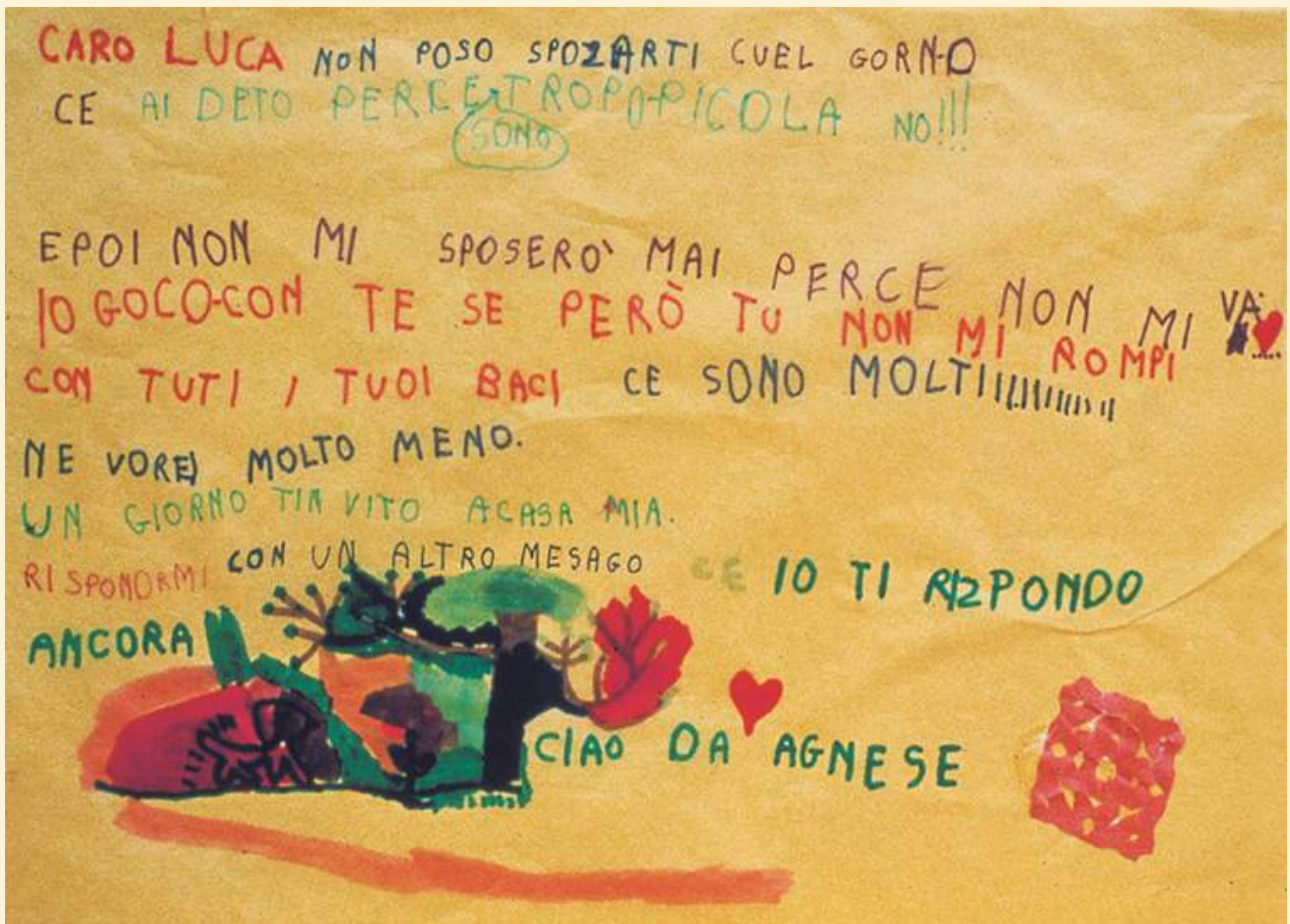 CARO LUCA NON POSO SPOZARTI CUEL GORNO
CE AI DETO PERCE TROPO PICOLA NO!!!
SONO
E POI NON MI SPOSERO' MAI PERCE NON MI VA
IO GOCO CON TE SE PERÒ TU NON MI ROMPI
CON TUTI I TUOI BACI CE SONO MOLTI!!!!!!!!!!!
NE VOREI MOLTO MENO.
UN GIORNO TIN VITO ACASA MIA.
RISPONDRMI CON UN ALTRO MESAGO CE IO TI RIZPONDO
ANCORA
CIAO DA AGNESE